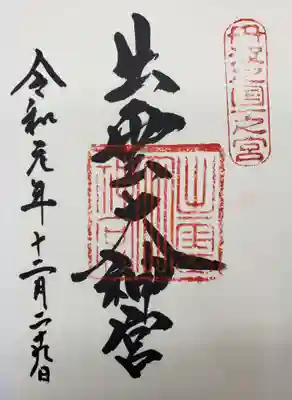 丹波國一之宮
出雲大神宮
令和元年十二月二十九日